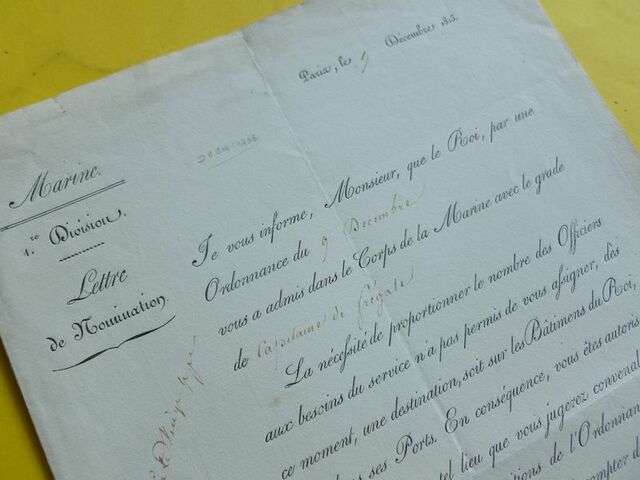 Paris, le 9 Décembre 1815.
Marine.
1.re Division.
Lettre
de Nomination.
Je vous informe, Monsieur, que le Roi, par une
Ordonnance du 9 Decembre
vous a admis dans le Corps de la Marine avec le grade
de Capitaine de frégate
La nécessité de proportionner le nombre des Officiers
aux besoins du service n'a pas permis de vous assigner, dès
ce moment, une destination, soit sur les Bâtimens du Roi,
ses Ports. En conséquence, vous êtes autoris
tel lieu que vous jugerez convenal
itions de l'Ordonnan
compter d